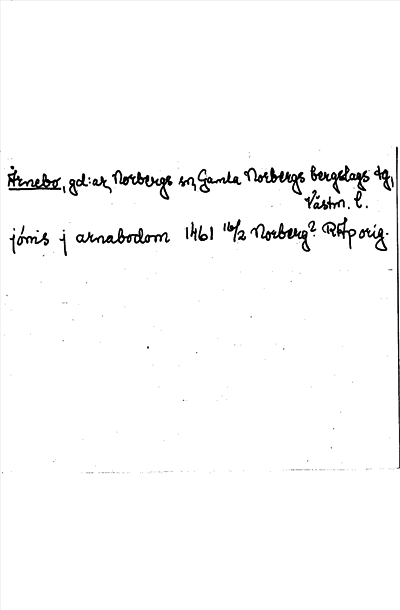 Årnebo, gd:ar, Norbergs sn, Gamla Norbergs bergslags tg,
Västm. l.
jönis j arnabodom 1461 16/2 Norberg? RAp orig.